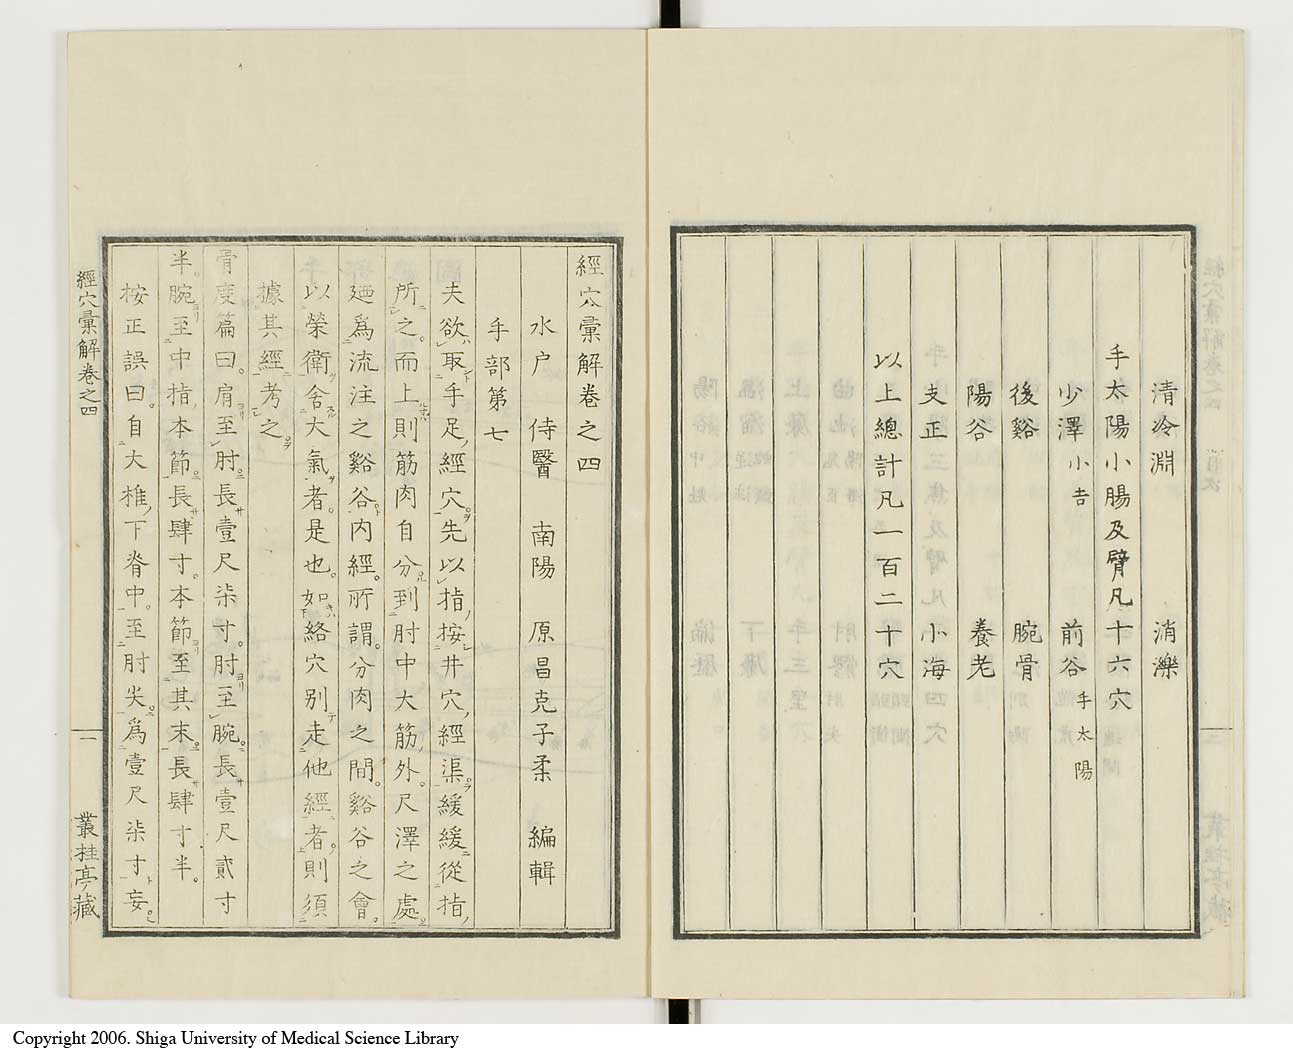 清冷淵 消濼
手太陽小腸及臂凡十六穴
少澤 小吉 前谷 手太陽
後谿 腕骨
陽谷 養老
支正 小海
以上總計凡一百二十穴
經穴彙解卷之四
水户 侍醫 南陽 原昌克子柔 編輯
手部第七
夫欲取手足經穴先以指按井穴經渠緩緩從指
所之而上則筋肉自分到肘中大筋外尺澤之處
廼爲流注之谿谷内經所謂分肉之間谿谷之會
以榮衛舍大氣者是也如絡穴别走他經者則須
據其經考之
骨度篇曰肩至肘長壹尺柒寸肘至腕長壹尺貳寸
半腕至中指本節長肆寸本節至其末長肆寸半
按正誤曰自大椎下脊中至肘尖爲壹尺柒寸妄
經穴彙解卷之四 一 叢桂亭藏
Copyright 2006. Shiga University of Medical Science Library